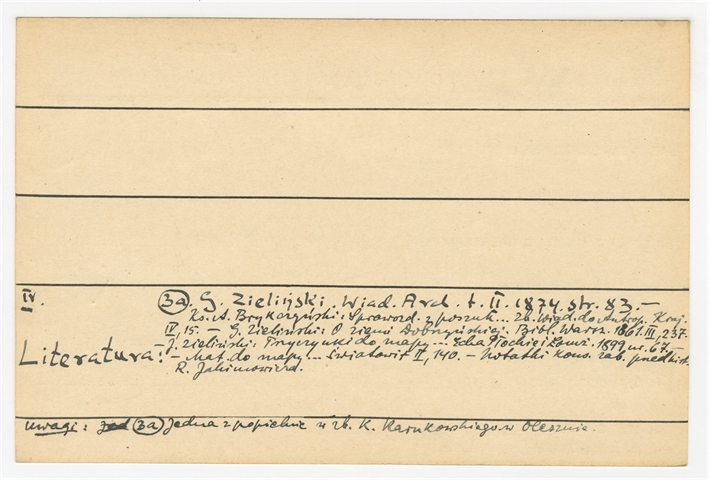 IV.
(3a) G. Zieliński. Wiad. Arch. t. II. 1874 str. 83. —
Ks. A. Brykczyński: Sprawozd. z poszuk... Zb. Wiad. do Antrop. Kraj.
IV, 15. — G. Zieliński: O ziemi Dobrzyńskiej. Bibl. Warsz. 1861. III, 237.
Literatura: — J. Zieliński: Przyczynki do mapy... Echa Płockie i Łomż. 1899, nr. 67. —
— Mat. do mapy... Światowit II, 140. — Notatki kons. zab. przedhist.
R. Jakimowicza.
Uwagi: (3a) Jedna z popielnic w zb. K. Karnkowskiego w Olesznie.